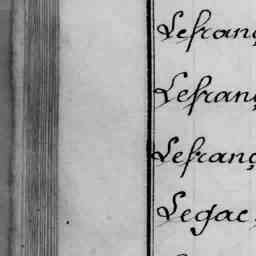 Lefranç
Lefranç
Lefranç
Legac